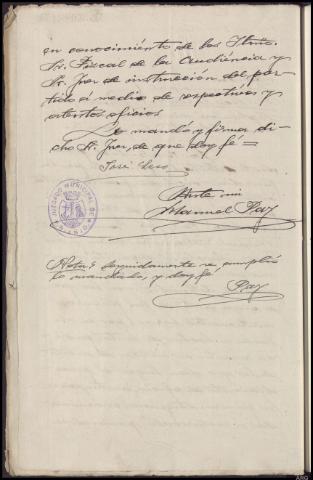 en conocimiento de los Iltmo.
Sr. Fiscal de la Audiencia y
Sr. Juez de instrucción del par-
tido á medio de respectivos y
atentos oficios
Lo mandó y firma di-
cho Sr. Juez, de que doy fé =
José
Ante mi
Manuel Rey
JUZGADO MUNICIPAL DE
Nota. Seguidamente se cumplió
lo mandado, y doy fé
Rey